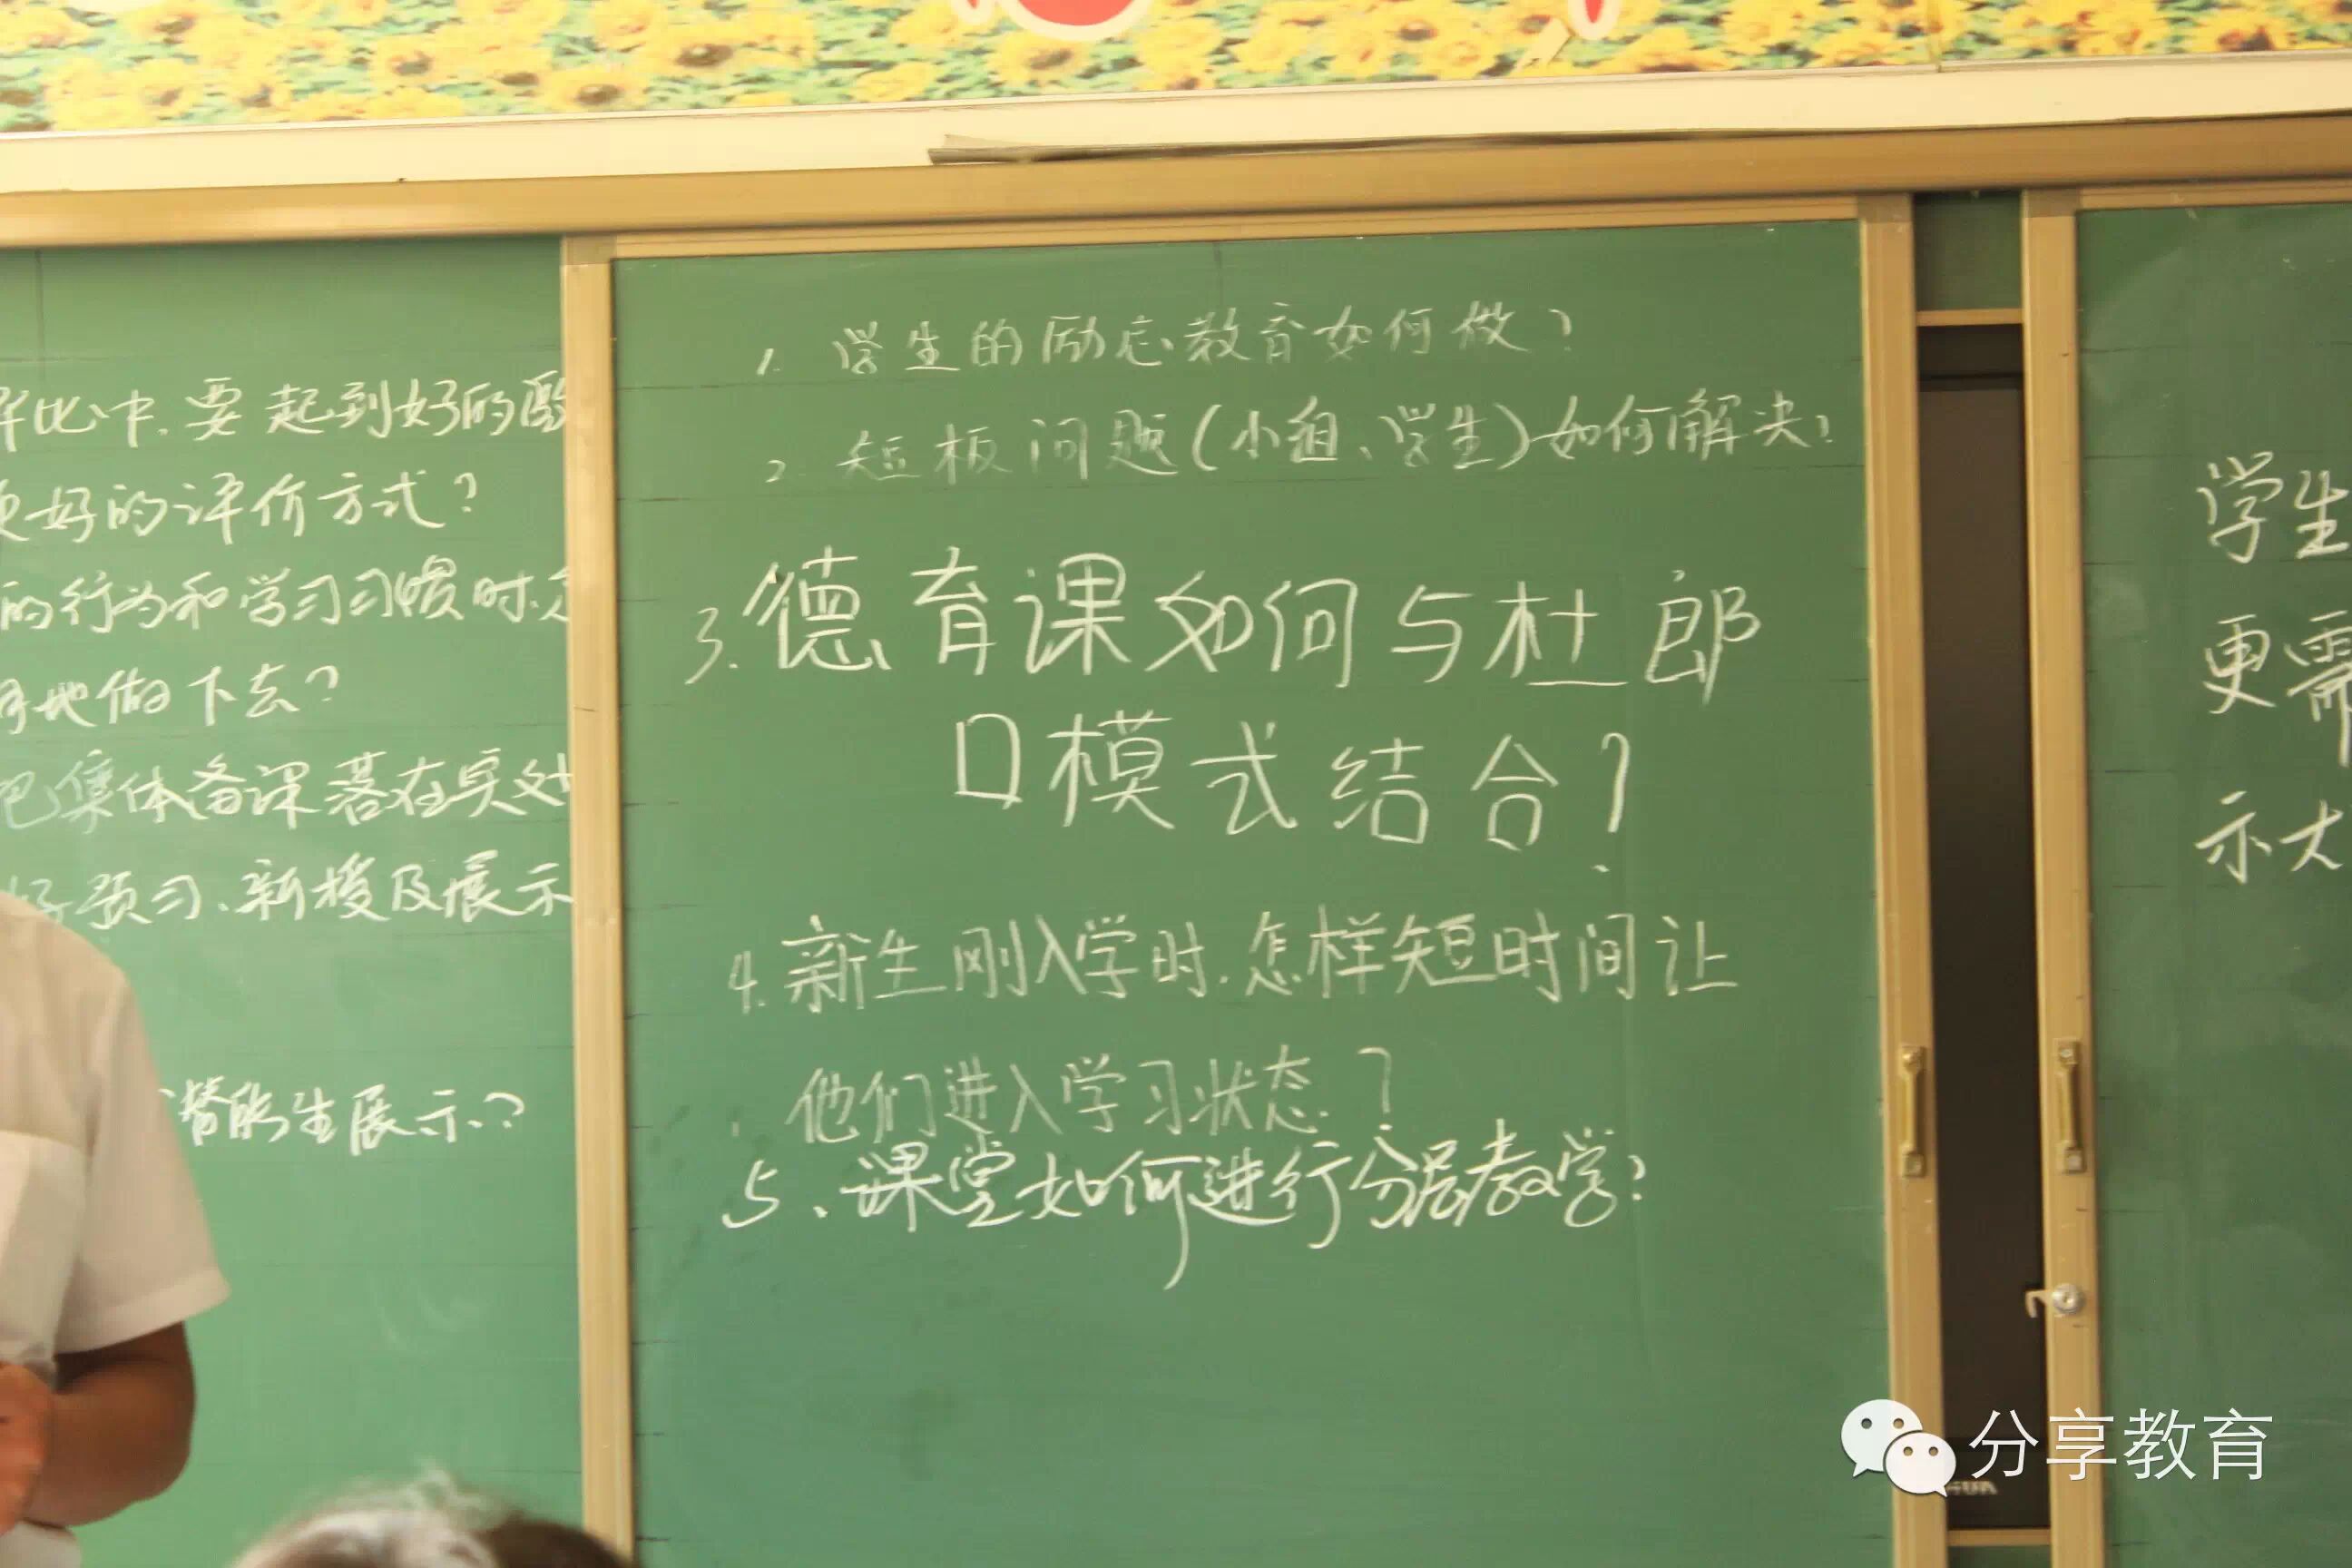 评比中,要起到好的
更好的评价方式?
的行为和学习习惯时,
地做下去?
把集体备课落在实处
好预习、新授及展示
潜能生展示?
1. 学生的励志教育如何做?
2. 短板问题(小组、学生)如何解决?
3. 德育课如何与杜郎
口模式结合?
4. 新生刚入学时.怎样短时间让
他们进入学习状态.?
5、课堂如何进行分层教学?
学生
更需
示大
分享教育